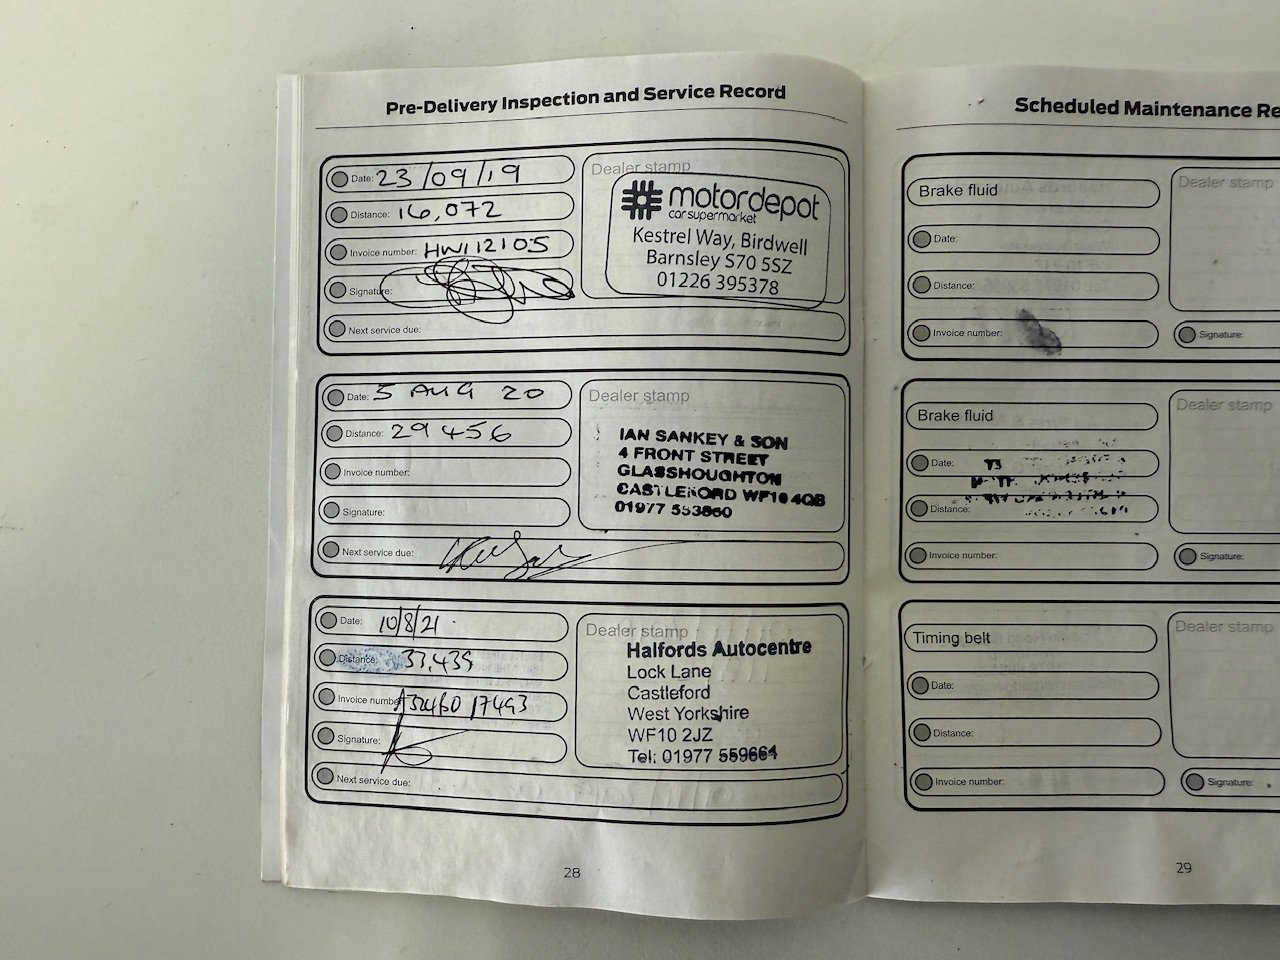 Pre-Delivery Inspection and Service Record
Date: 23/09/19
Distance: 16,072
Invoice number: HW112105
Signature:
Next service due:
Dealer stamp
motordepot
car supermarket
Kestrel Way, Birdwell
Barnsley S70 5SZ
01226 395378
Date: 5 AUG 20
Distance: 29456
Invoice number:
Signature:
Next service due:
Dealer stamp
IAN SANKEY & SON
4 FRONT STREET
GLASSHOUGHTON
CASTLEFORD WF10 4QB
01977 553860
Date: 10/8/21
Distance: 33,439
Invoice number:
Signature:
Next service due:
Dealer stamp
Halfords Autocentre
Lock Lane
Castleford
West Yorkshire
WF10 2JZ
Tel: 01977 559664
28
Scheduled Maintenance Re
Brake fluid
Date:
Distance:
Invoice number:
Dealer stamp
Signature:
Brake fluid
Date:
Distance:
Invoice number:
Dealer stamp
Signature:
Timing belt
Date:
Distance:
Invoice number:
Dealer stamp
Signature:
29